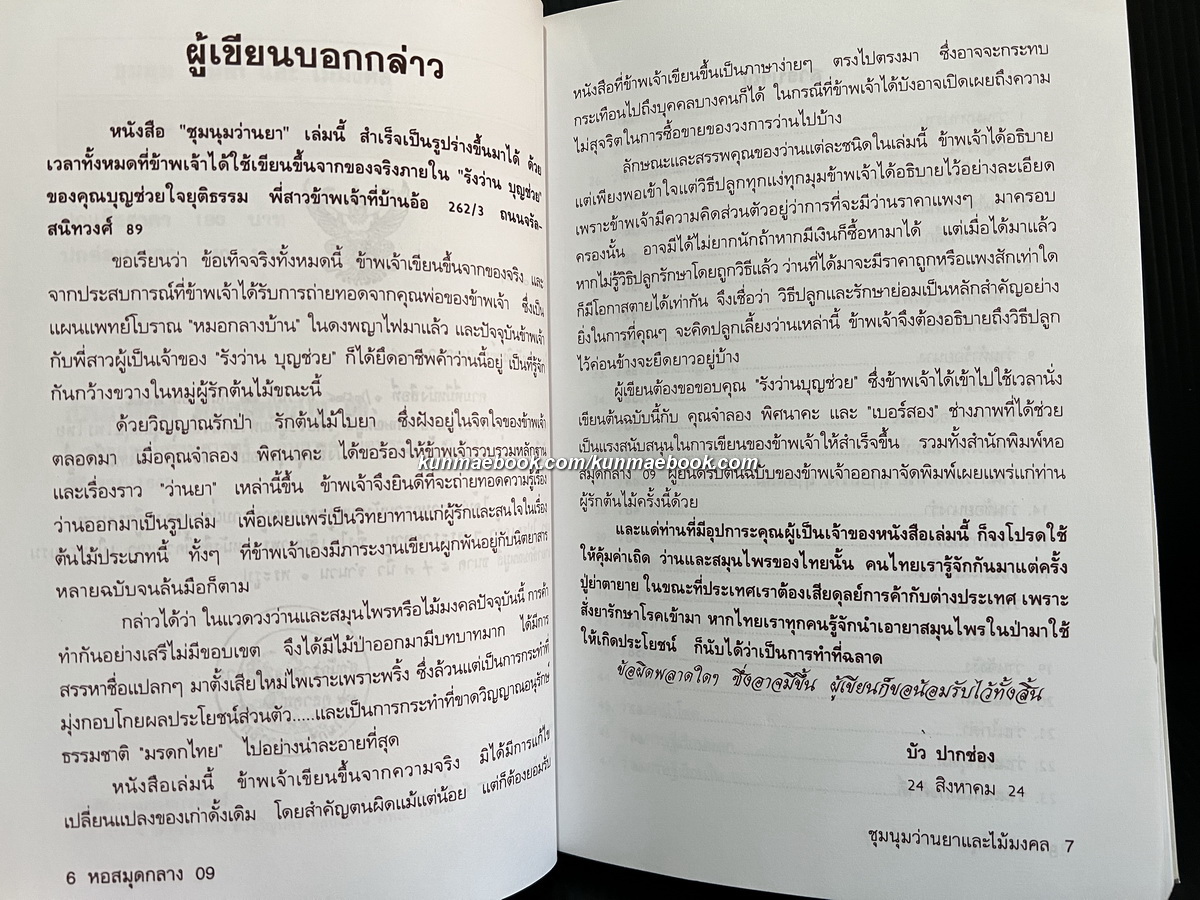 ผู้เขียนบอกกล่าว
หนังสือ "ชุมนุมว่านยา" เล่มนี้ สำเร็จเป็นรูปร่างขึ้นมาได้ ด้วย
เวลาทั้งหมดที่ข้าพเจ้าได้ใช้เขียนขึ้นจากของจริงภายใน "รังว่าน บุญช่วย"
ของคุณบุญช่วยใจยุติธรรม พี่สาวข้าพเจ้าที่บ้านอ้อ 262/3 ถนนจรัล-
สนิทวงศ์ 89
ขอเรียนว่า ข้อเท็จจริงทั้งหมดนี้ ข้าพเจ้าเขียนขึ้นจากของจริง และ
จากประสบการณ์ที่ข้าพเจ้าได้รับการถ่ายทอดจากคุณพ่อของข้าพเจ้า ซึ่งเป็น
แผนแพทย์โบราณ "หมอกลางบ้าน" ในดงพญาไฟมาแล้ว และปัจจุบันข้าพเจ้า
กับพี่สาวผู้เป็นเจ้าของ "รังว่าน บุญช่วย" ก็ได้ยึดอาชีพค้าว่านนี้อยู่ เป็นที่รู้จัก
กันกว้างขวางในหมู่ผู้รักต้นไม้ขณะนี้
ด้วยวิญญาณรักป่า รักต้นไม้ใบยา ซึ่งฝังอยู่ในจิตใจของข้าพเจ้า
ตลอดมา เมื่อคุณจำลอง พิศนาคะ ได้ขอร้องให้ข้าพเจ้ารวบรวมหลักฐาน
และเรื่องราว "ว่านยา" เหล่านี้ขึ้น ข้าพเจ้าจึงยินดีที่จะถ่ายทอดความรู้เรื่อง
ว่านออกมาเป็นรูปเล่ม เพื่อเผยแพร่เป็นวิทยาทานแก่ผู้รักและสนใจในเรื่อง
ต้นไม้ประเภทนี้ ทั้งๆ ที่ข้าพเจ้าเองมีภาระงานเขียนผูกพันอยู่กับนิตยาสาร
หลายฉบับจนล้นมือก็ตาม
กล่าวได้ว่า ในแวดวงว่านและสมุนไพรหรือไม้มงคลปัจจุบันนี้ การค้า
ทำกันอย่างเสรีไม่มีขอบเขต จึงได้มีไม้ป่าออกมามีบทบาทมาก ได้มีการ
สรรหาชื่อแปลกๆ มาตั้งเสียใหม่ไพเราะเพราะพริ้ง ซึ่งล้วนแต่เป็นการกระทำที่
มุ่งกอบโกยผลประโยชน์ส่วนตัว.....และเป็นการกระทำที่ขาดวิญญาณอนุรักษ์
ธรรมชาติ "มรดกไทย" ไปอย่างน่าละอายที่สุด
หนังสือเล่มนี้ ข้าพเจ้าเขียนขึ้นจากความจริง มิได้มีการแก้ไข
เปลี่ยนแปลงของเก่าดั้งเดิม โดยสำคัญตนผิดแม้แต่น้อย แต่ก็ต้องยอมรับ
6 หอสมุดกลาง 09
หนังสือที่ข้าพเจ้าเขียนขึ้นเป็นภาษาง่ายๆ ตรงไปตรงมา ซึ่งอาจจะกระทบ
กระเทือนไปถึงบุคคลบางคนก็ได้ ในกรณีที่ข้าพเจ้าได้บังอาจเปิดเผยถึงความ
ไม่สุจริตในการซื้อขายของวงการว่านไปบ้าง
ลักษณะและสรรพคุณของว่านแต่ละชนิดในเล่มนี้ ข้าพเจ้าได้อธิบาย
แต่เพียงพอเข้าใจแต่วิธีปลูกทุกแง่ทุกมุมข้าพเจ้าได้อธิบายไว้อย่างละเอียด
เพราะข้าพเจ้ามีความคิดส่วนตัวอยู่ว่าการที่จะมีว่านราคาแพงๆ มาครอบ
ครองนั้น อาจมีได้ไม่ยากนักถ้าหากมีเงินก็ซื้อหามาได้ แต่เมื่อได้มาแล้ว
หากไม่รู้วิธีปลูกรักษาโดยถูกวิธีแล้ว ว่านที่ได้มาจะมีราคาถูกหรือแพงสักเท่าใด
ก็มีโอกาสตายได้เท่ากัน จึงเชื่อว่า วิธีปลูกและรักษาย่อมเป็นหลักสำคัญอย่าง
ยิ่งในการที่คุณๆ จะคิดปลูกเลี้ยงว่านเหล่านี้ ข้าพเจ้าจึงต้องอธิบายถึงวิธีปลูก
ไว้ค่อนข้างจะยืดยาวอยู่บ้าง
ผู้เขียนต้องขอขอบคุณ "รังว่านบุญช่วย" ซึ่งข้าพเจ้าได้เข้าไปใช้เวลานั่ง
เขียนต้นฉบับนี้กับ คุณจำลอง พิศนาคะ และ "เบอร์สอง" ช่างภาพที่ได้ช่วย
เป็นแรงสนับสนุนในการเขียนของข้าพเจ้าให้สำเร็จขึ้น รวมทั้งสำนักพิมพ์หอ
สมุดกลาง 09 ผู้ยินดีรับต้นฉบับของข้าพเจ้าออกมาจัดพิมพ์เผยแพร่แก่ท่าน
ผู้รักต้นไม้ครั้งนี้ด้วย
และแด่ท่านที่มีอุปการะคุณผู้เป็นเจ้าของหนังสือเล่มนี้ ก็จงโปรดใช้
ให้คุ้มค่าเถิด ว่านและสมุนไพรของไทยนั้น คนไทยเรารู้จักกันมาแต่ครั้ง
ปู่ย่าตายาย ในขณะที่ประเทศเราต้องเสียดุลย์การค้ากับต่างประเทศ เพราะ
สั่งยารักษาโรคเข้ามา หากไทยเราทุกคนรู้จักนำเอายาสมุนไพรในป่ามาใช้
ให้เกิดประโยชน์ ก็นับได้ว่าเป็นการทำที่ฉลาด
ข้อผิดพลาดใดๆ ซึ่งอาจมีขึ้น ผู้เขียนก็ขอน้อมรับไว้ทั้งสิ้น
บัว ปากช่อง
24 สิงหาคม 24
ชุมนุมว่านยาและไม้มงคล 7
kunmaebook.com/kunmaebook.com